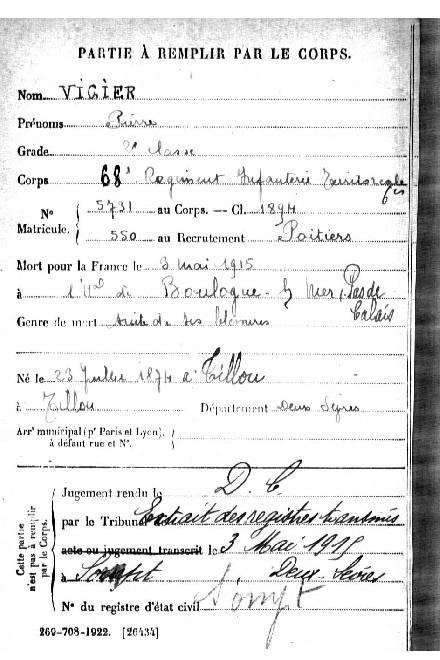 PARTIE À REMPLIR PAR LE CORPS.
Nom VIGIER
Prénoms Pierre
Grade 2e classe
Corps 68e Regiment Infanterie Territoriale
6e Cie
No Matricule. { 5731 au Corps. — Cl. 1894
550 au Recrutement Poitiers
Mort pour la France le 3 mai 1915
à l'Hal de Boulogne s/ Mer, Pas de Calais
Genre de mort suite de ses blessures
Né le 23 Juillet 1874 à Tillou
à Tillou Département Deux Sèvres
Arrt municipal (pr Paris et Lyon),
à défaut rue et No.
Cette partie n'est pas à remplir par le Corps.
Jugement rendu le D. C
par le Tribunal Extrait des registres transmis
acte ou jugement transcrit le 3 Mai 1915
à Sompt Deux Sèvres
No du registre d'état civil Sompt
269-708-1922. [26434]